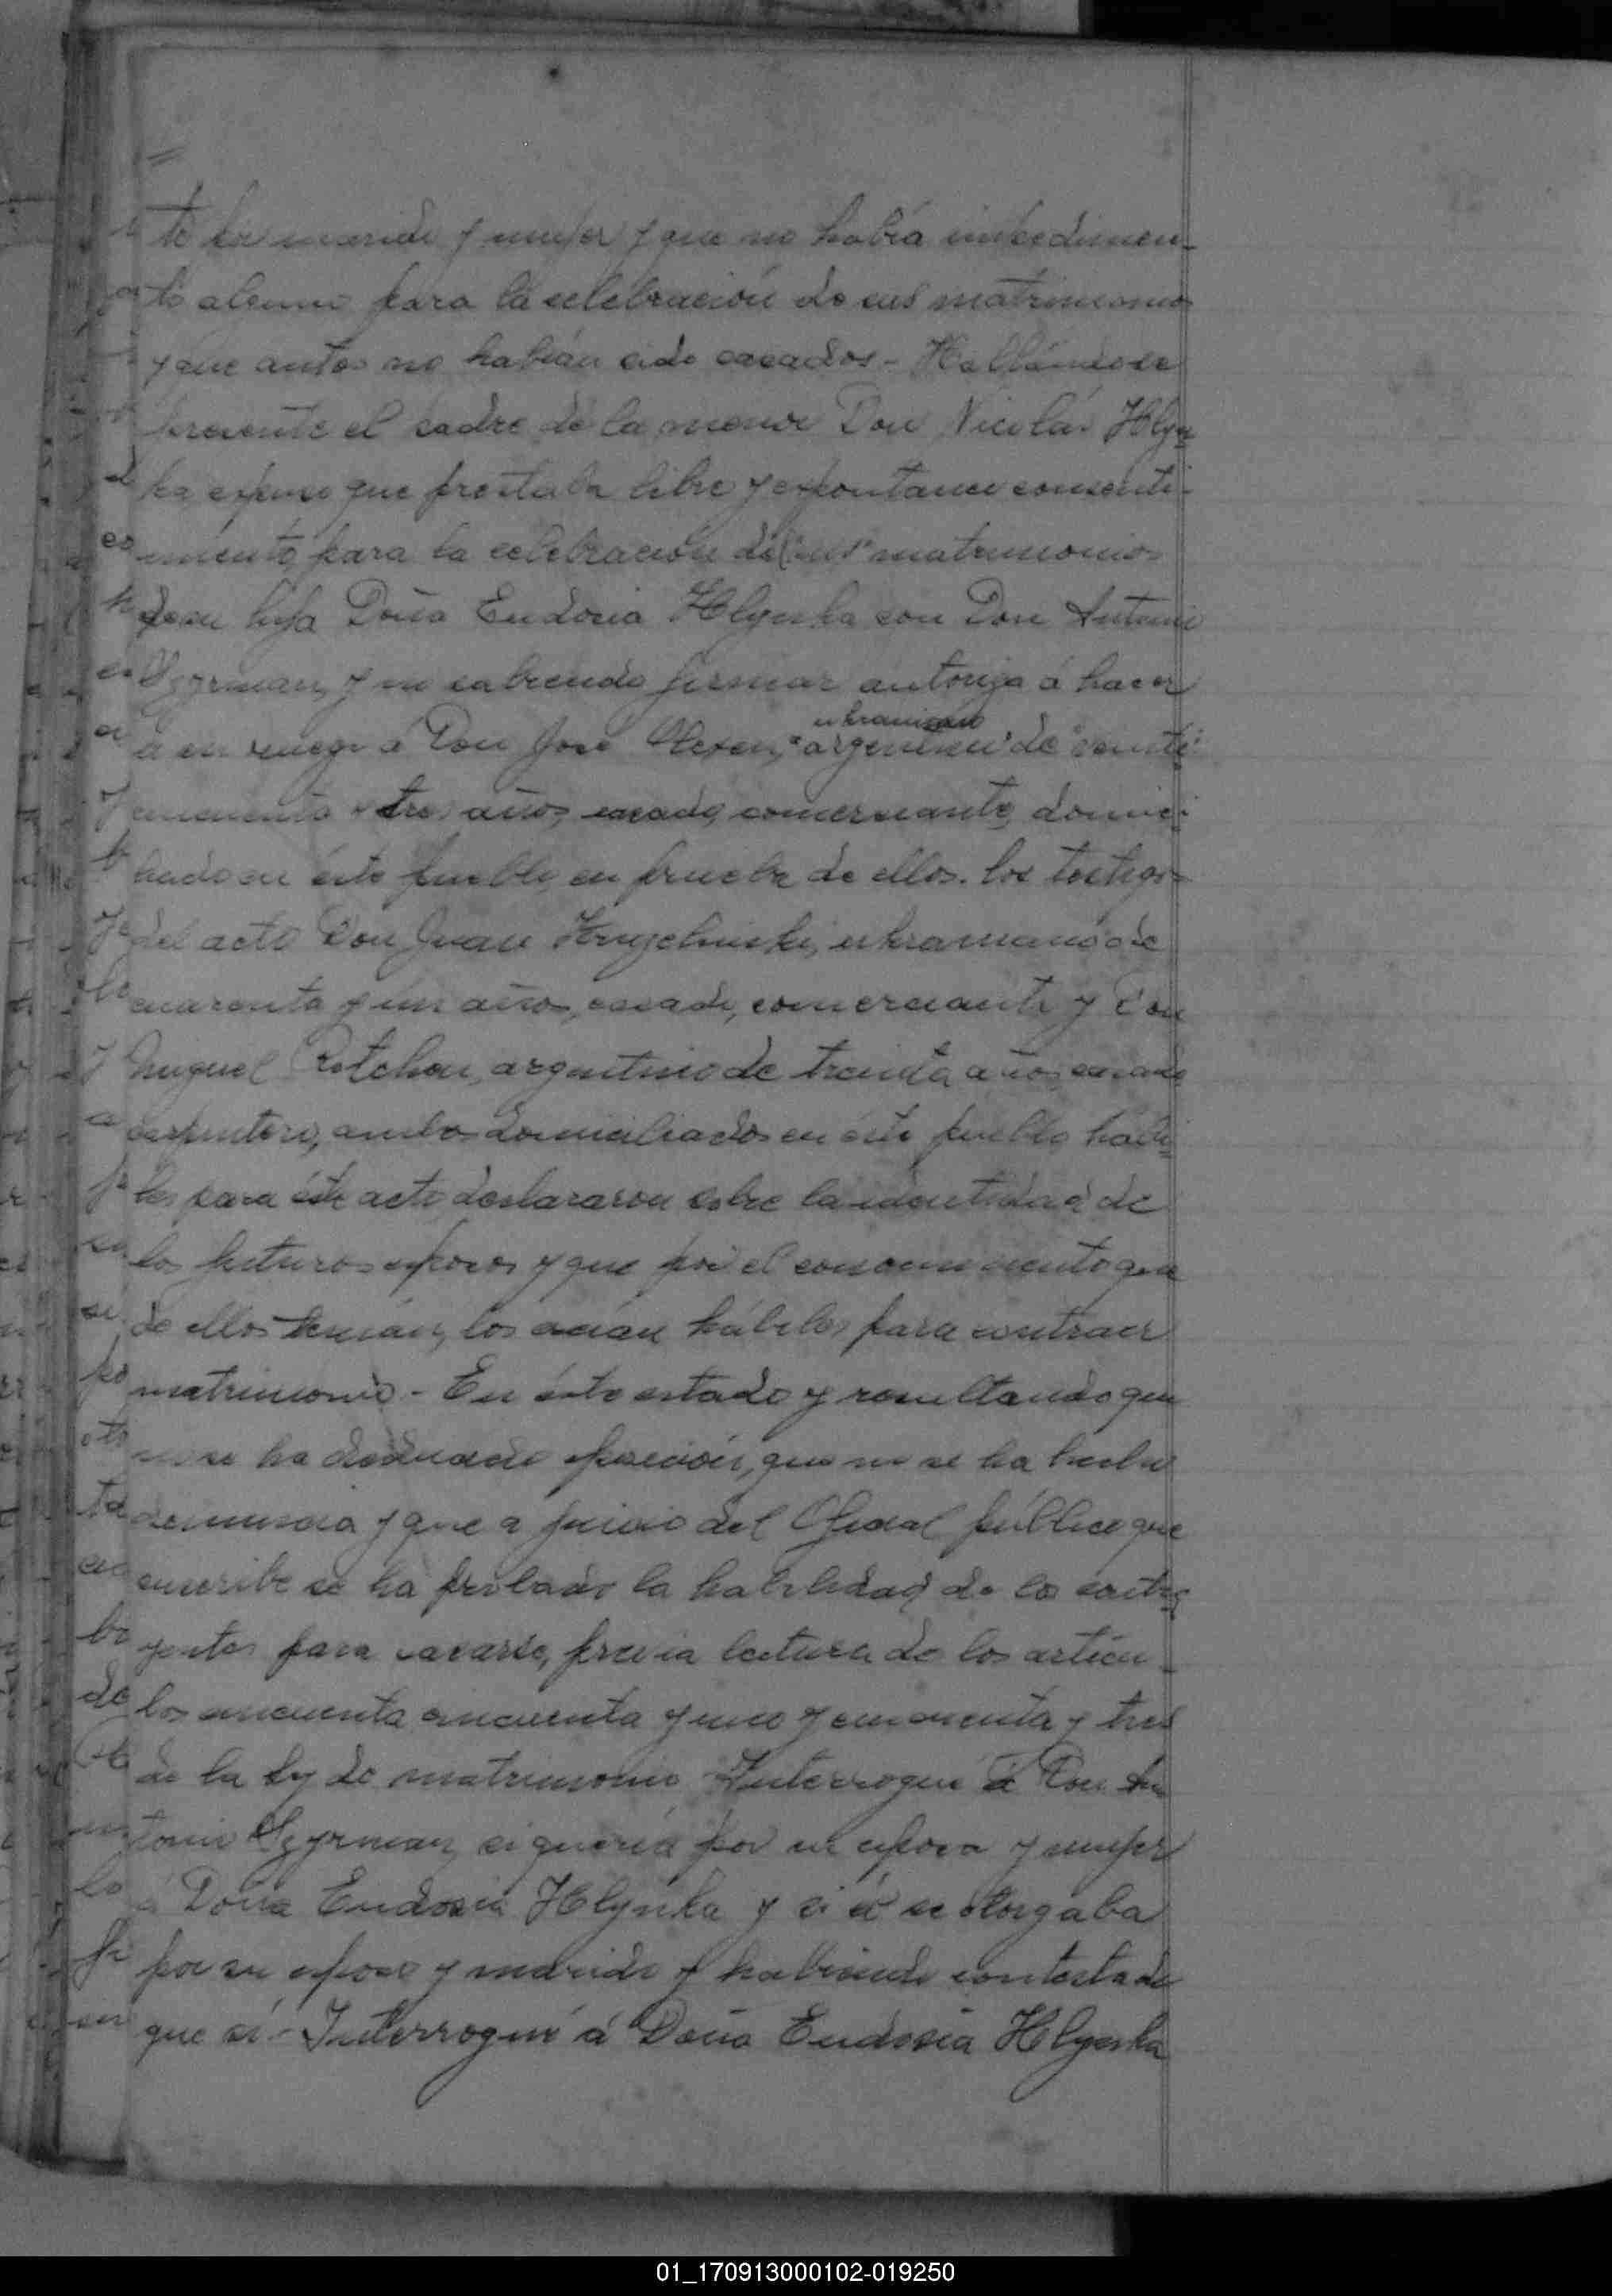 to por marido y mujer y que no había impedimen-
to alguno para la celebración de sus matrimonios
y que antes no habían sido casados - Hallándose
presente el padre de la menor Don Nicolás Hlyn
ka expuso que prestaba libre y expontaneo consenti-
miento para la celebración de "sus" matrimonios
de su hija Doña Eudosia Hlynka con Don Antonio
y no sabiendo firmar autoriza á hacer
ukraniano
a su ruego á Don José argentino de veinte
cincuenta y tres años, casado, comerciante, domici-
liado en éste pueblo, en prueba de ellos. los testigos
del acto Don Juan ukraniano de
cuarenta y un años, casado, comerciante y Don
Miguel argentino de treinta años casado
carpintero, ambos domiciliados en éste pueblo, hábi
les para éste acto declararon sobre la identidad de
los futuros esposos y que por el conocimiento que
de ellos tenían, los creían hábiles para contraer
matrimonio - En éste estado y resultando que
no se ha deducido oposición, que no se ha hecho
denuncia y que a juicio del Oficial público que
suscribe se ha probado la habilidad de los contra
yentes para casarse, previa lectura de los artícu-
los cincuenta cincuenta y uno y cincuenta y tres
de la ley de matrimonio Interrogué á Don An
tonio si quería por su esposa y mujer
á Doña Eudosia Hlynka y si él se otorgaba
por su esposo y marido y habiendo contestado
que sí - Interrogué á Doña Eudosia Hlynka
01_170913000102-019250